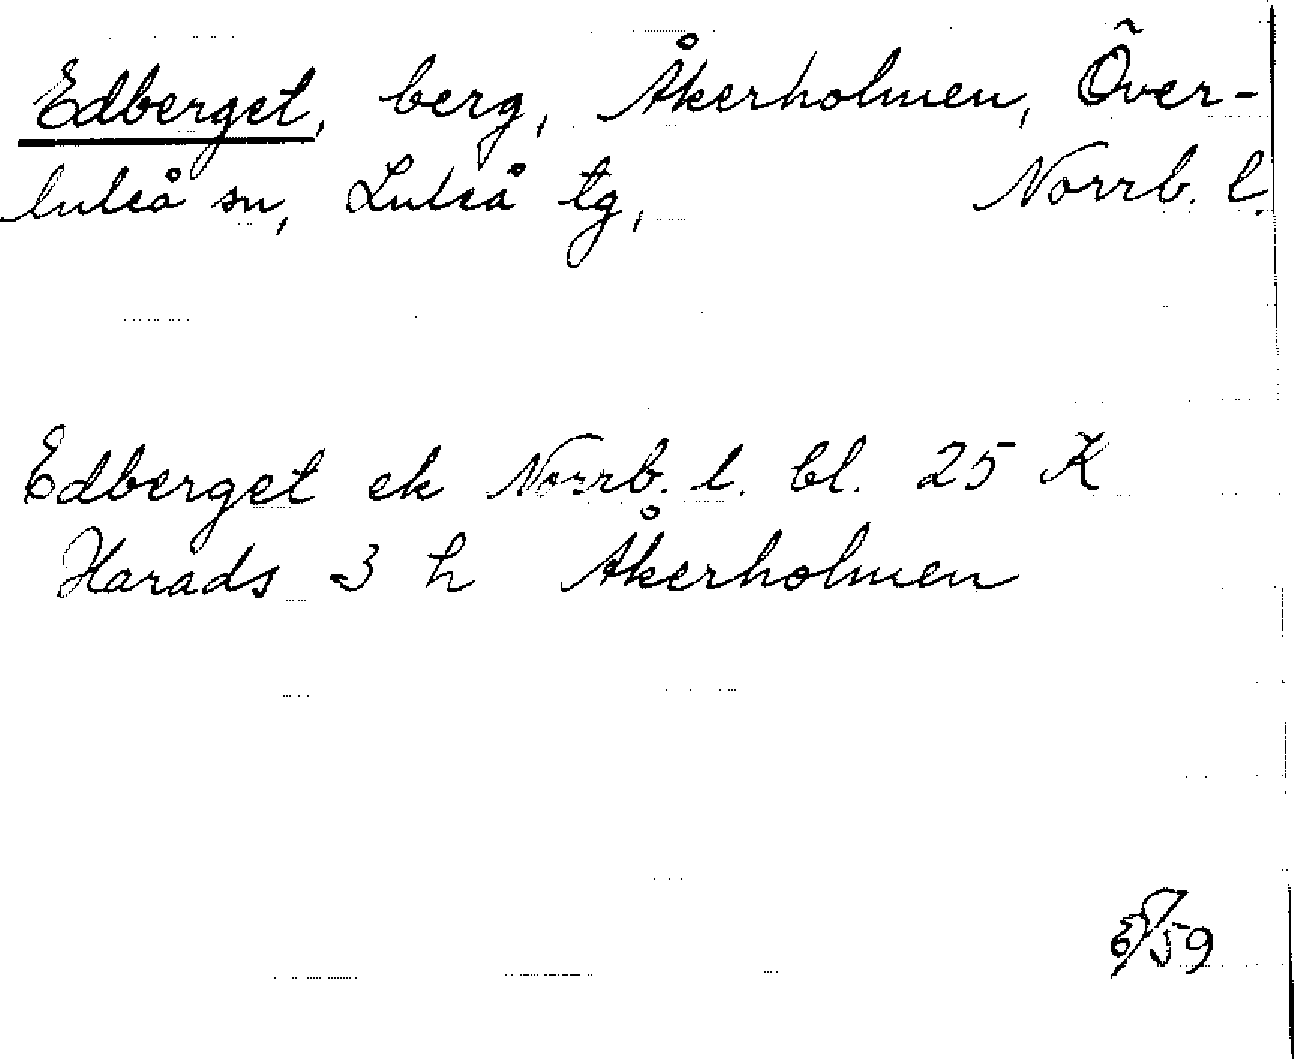 Edberget, berg, Åkerholmen, Över-
luleå sn, Luleå tg, Norrb. l.
Edberget ek Norrb. l. bl. 25 K
Harads 3 h Åkerholmen
59